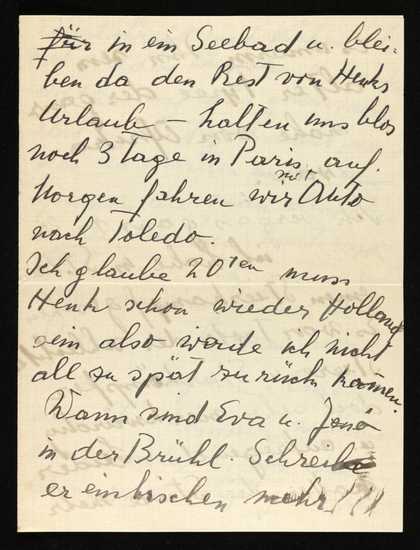 für in ein Seebad u. blei-
ben da den Rest von Henks
Urlaub – halten uns blos
noch 3 Tage in Paris auf.
Morgen fahren wir mit Auto
nach Toledo.
Ich glaube 20ten muss
Henk schon wieder Holland
sein also werde ich nicht
all zu spät zurück kommen.
Wann sind Eva u. Jenö
in der Brühl. Schreib
er ein bischen mehr!!!!